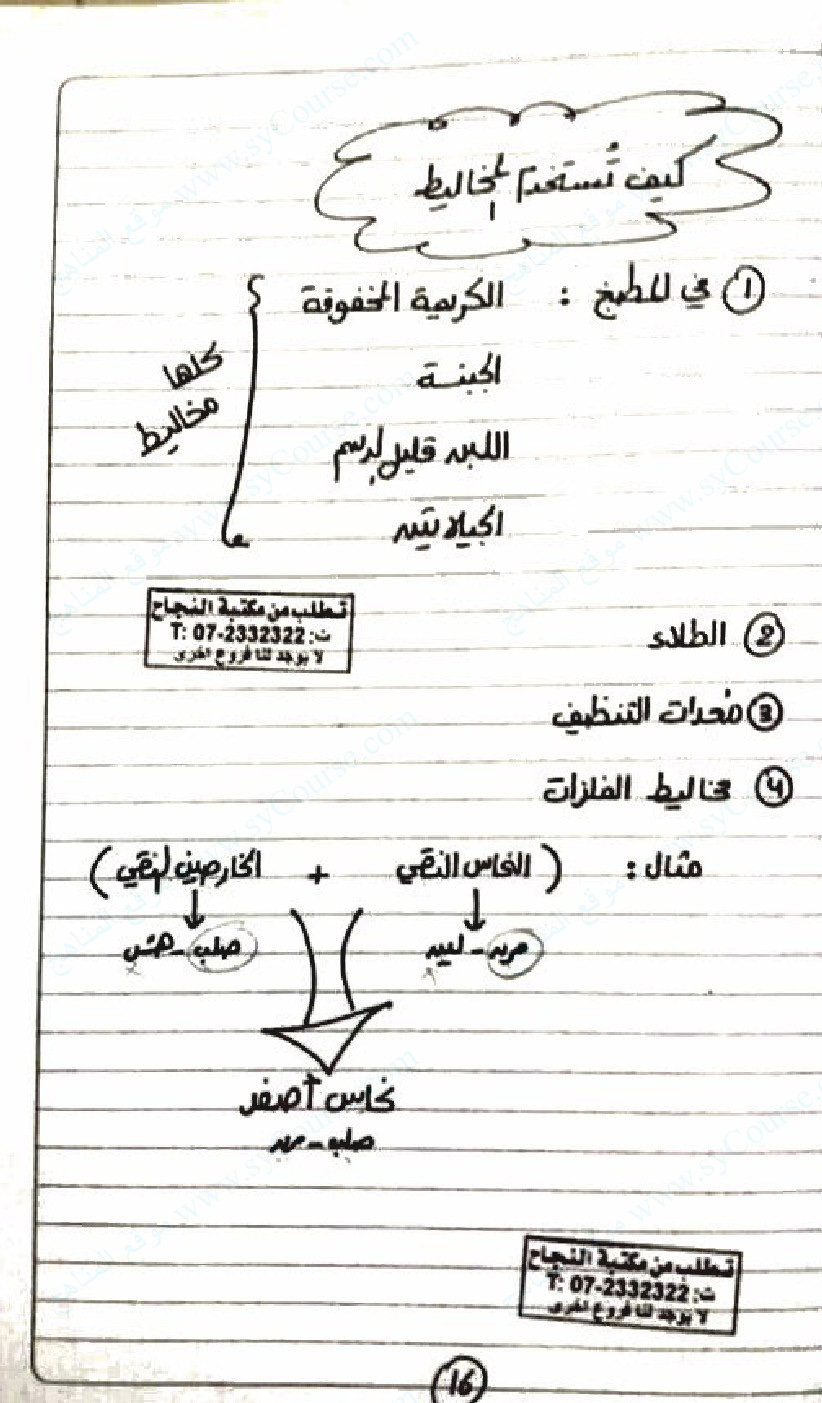 كيف تُستخدم المخاليط
① في المطبخ : الكريمة المخفوقة
الجبنة
اللبن قليل الدسم
الجيلاتين
كلها
مخاليط
تطلب من مكتبة النجاح
ت: T: 07-2332322
لا يوجد لنا فروع اخرى
② الطلاء
③ مُعدات التنظيف
④ مخاليط الفلزات
مثال : ( النحاس النقي + الخارصين النقي )
مرن - لين
صلب - هش
نحاس أصفر
صلب - مرن
تطلب من مكتبة النجاح
ت: T: 07-2332322
لا يوجد لنا فروع اخرى
16
موقع المناهج www.syCourse.com